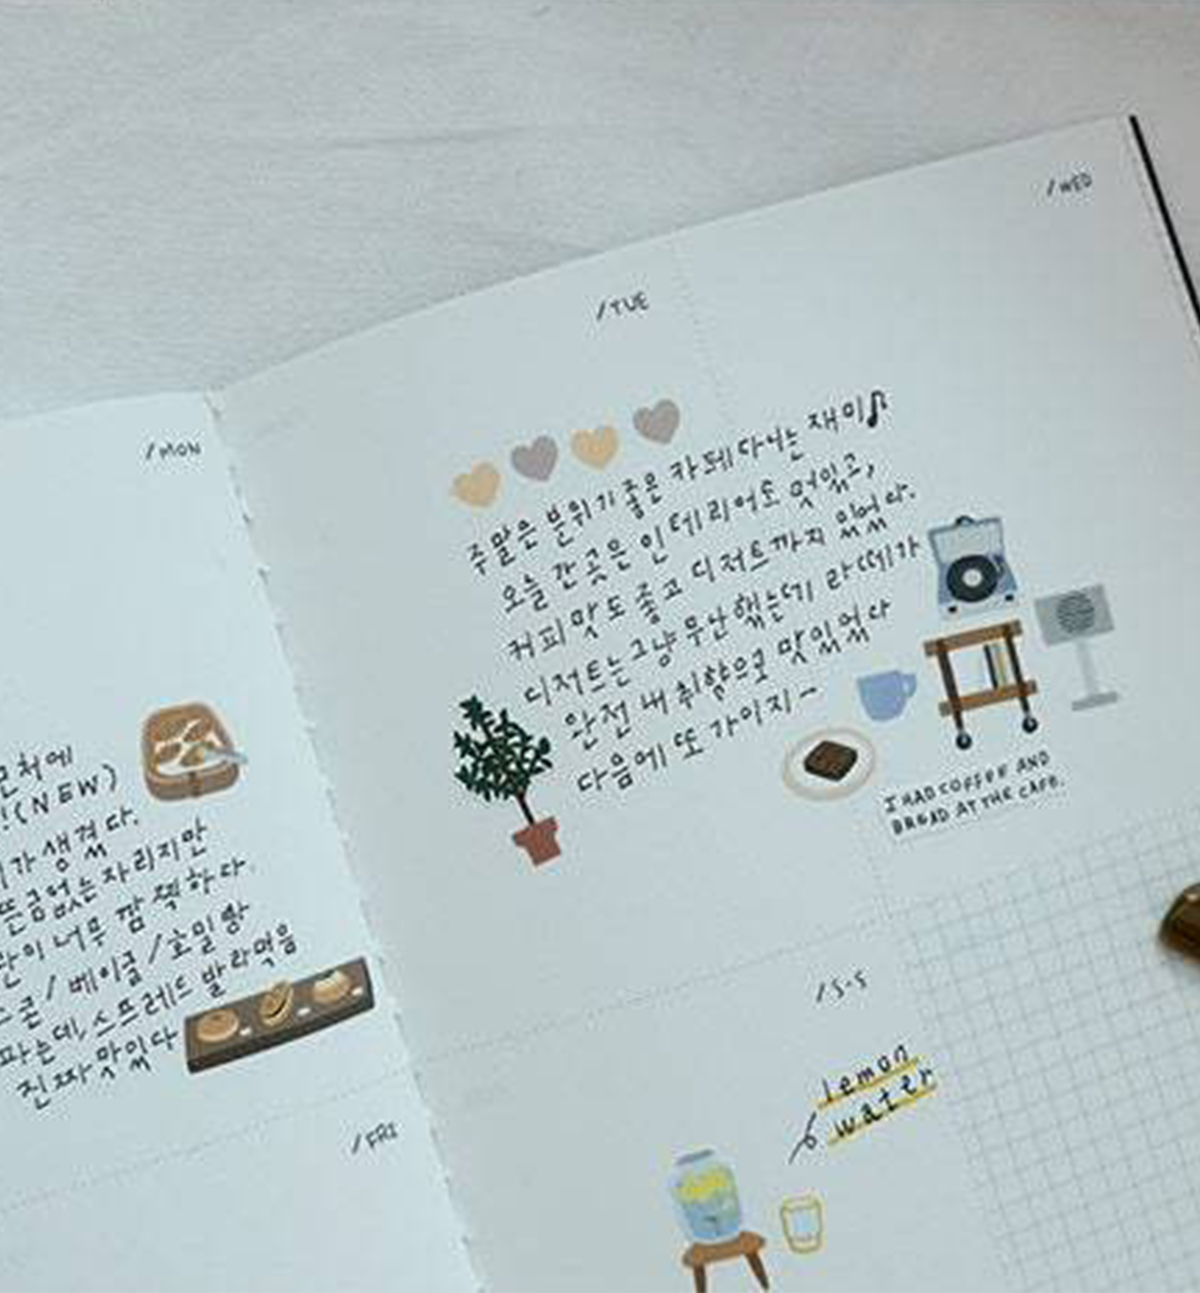 /MON
근처에
!(NEW)
가 생겼다.
뜬금없는 자리지만
이 너무 깜찍하다.
스콘/베이글/호밀빵
파는데, 스프레드 발라먹음
진짜 맛있다
/FRI
/TUE
주말은 분위기 좋은 카페 다니는 재미♪
오늘 간 곳은 인테리어도 멋있고,
커피 맛도 좋고 디저트까지 있었다.
디저트는 그냥 무난했는데 라떼가
완전 내 취향으로 맛있었다
다음에 또 가야지~
I HAD COFFEE AND
BREAD AT THE CAFE.
/WED
/S·S
lemon
water